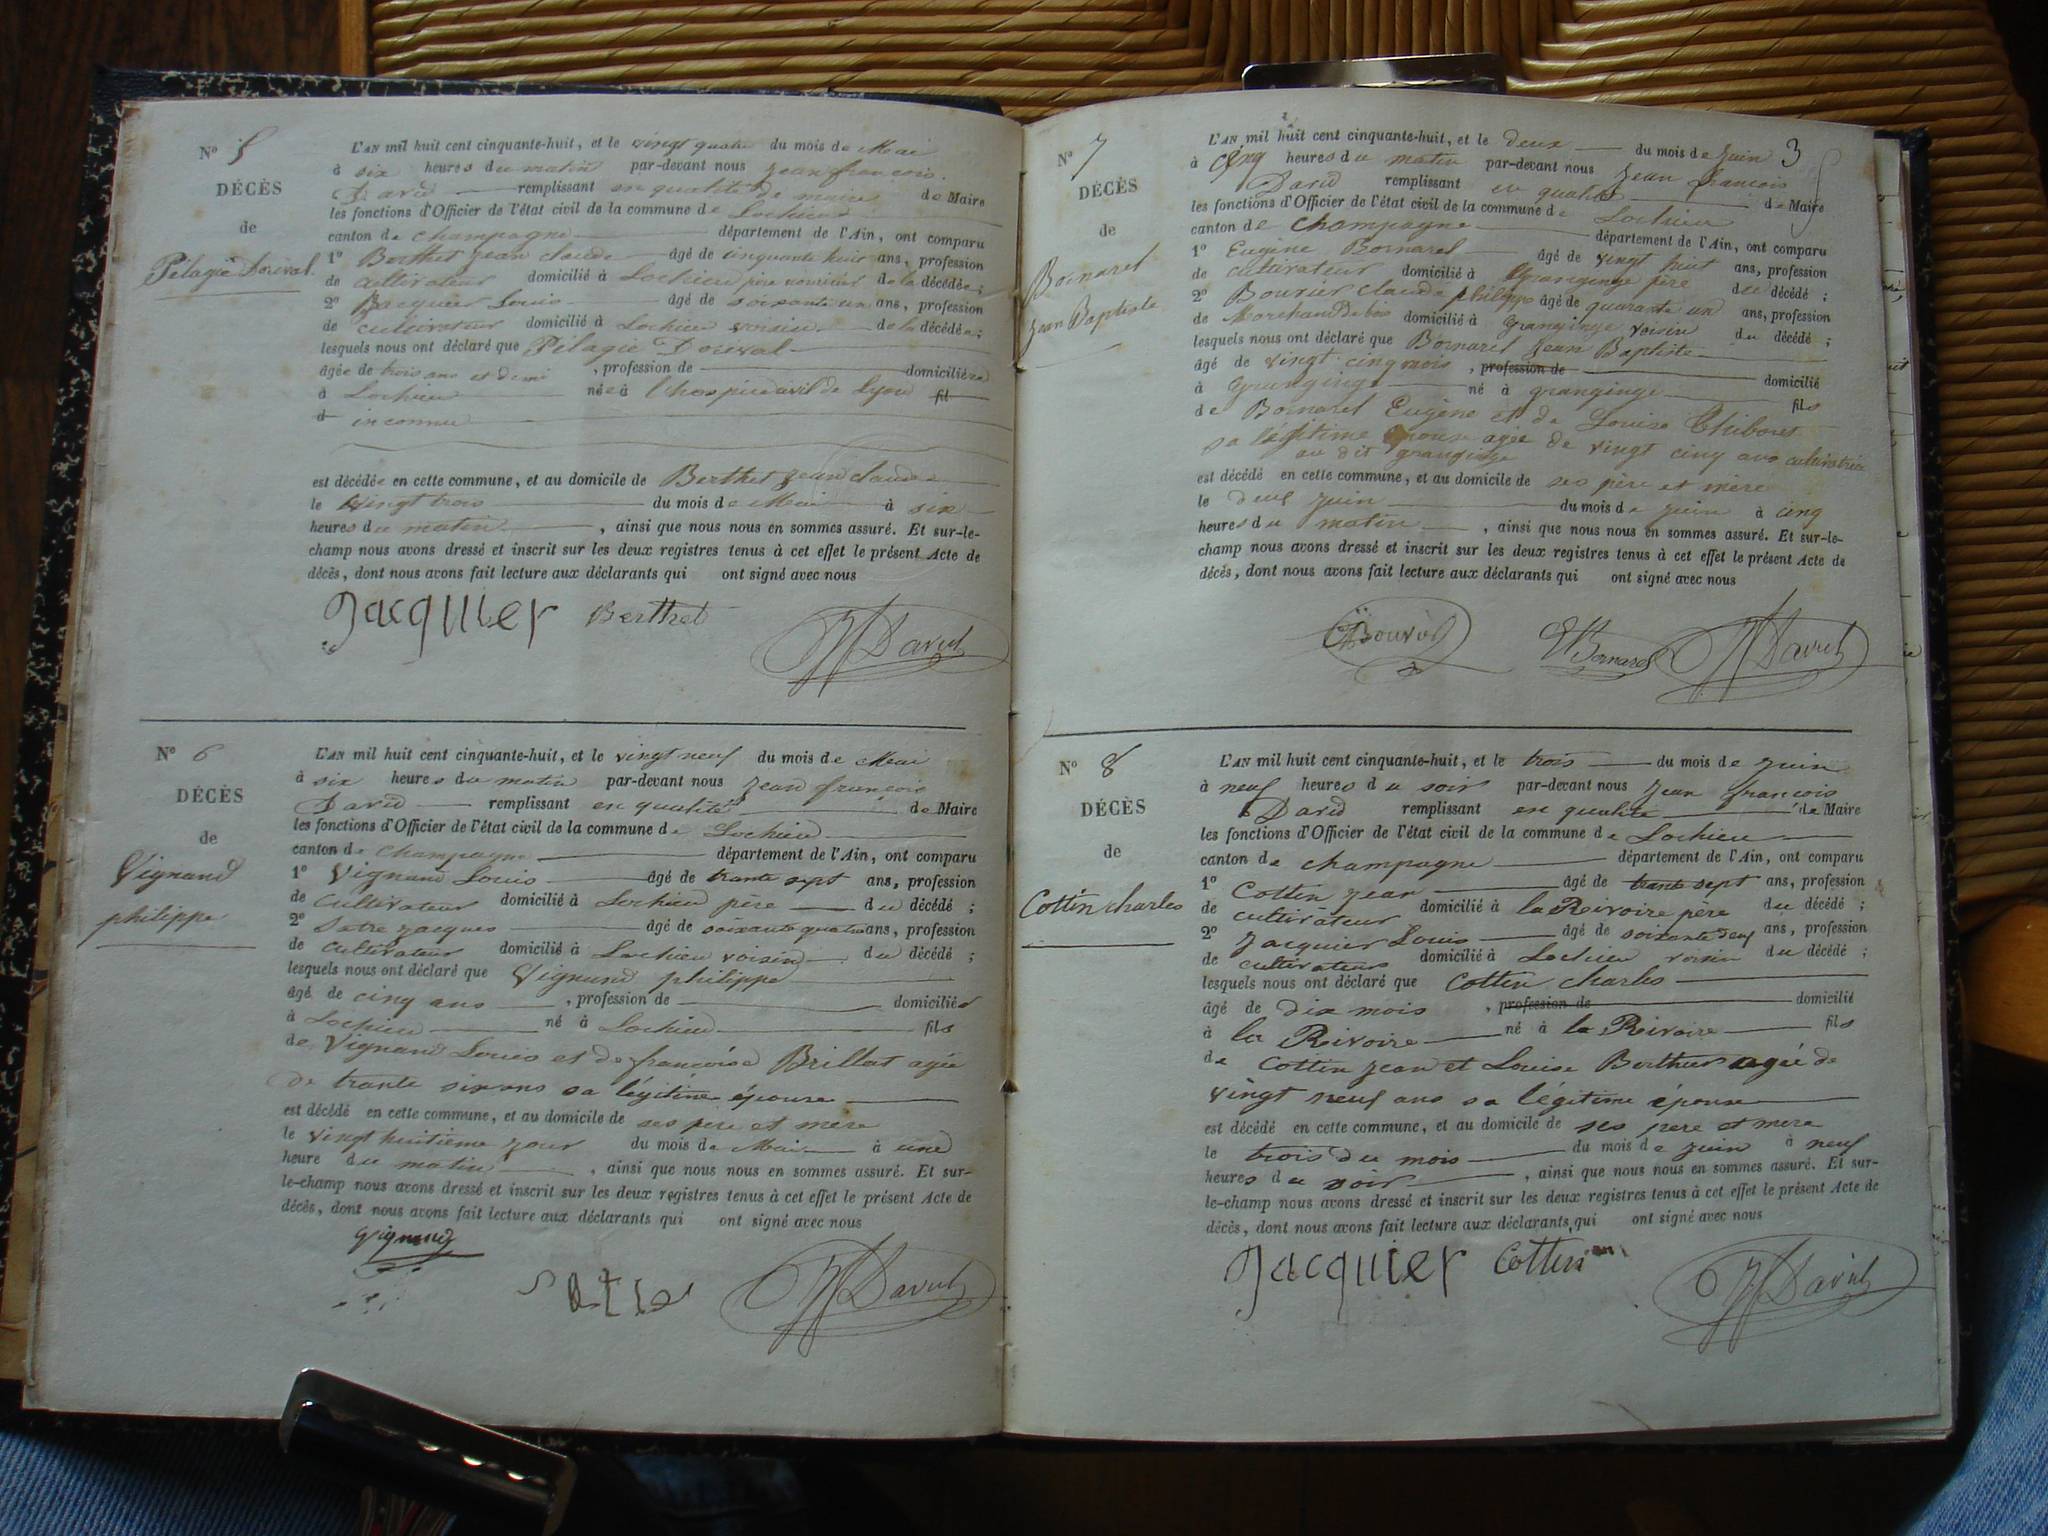 N° 5
DÉCÈS
de
Pélagie Dorival
L'AN mil huit cent cinquante-huit, et le vingt quatre du mois de Mai
à six heures du matin par-devant nous Jean françois
David remplissant en qualité de maire de Maire
les fonctions d'Officier de l'état civil de la commune de Lochieu
canton de champagne département de l'Ain, ont comparu
1° Berthet Jean claude âgé de cinquante huit ans, profession
de cultivateur domicilié à Lochieu père nourricier de la décédée;
2° Jacquier Louis âgé de soixante un ans, profession
de cultivateur domicilié à Lochieu voisin de la décédée;
lesquels nous ont déclaré que Pélagie Dorival
âgée de trois ans et demi, profession de domiciliée
à Lochieu née à l'hospice civil de Lyon fil
d inconnu
est décédée en cette commune, et au domicile de Berthet Jean claude
le vingt trois du mois de Mai à six
heures du matin, ainsi que nous nous en sommes assuré. Et sur-le-
champ nous avons dressé et inscrit sur les deux registres tenus à cet effet le présent Acte de
décès, dont nous avons fait lecture aux déclarants qui ont signé avec nous
Jacquier Berthet JF David
N° 6
DÉCÈS
de
Vignand
philippe
L'AN mil huit cent cinquante-huit, et le vingt neuf du mois de Mai
à six heures du matin par-devant nous Jean françois
David remplissant en qualité de Maire
les fonctions d'Officier de l'état civil de la commune de Lochieu
canton de champagne département de l'Ain, ont comparu
1° Vignand Louis âgé de trante sept ans, profession
de cultivateur domicilié à Lochieu père du décédé;
2° Satre Jacques âgé de soixante quatre ans, profession
de cultivateur domicilié à Lochieu voisin du décédé;
lesquels nous ont déclaré que Vignand philippe
âgé de cinq ans, profession de domicilié
à Lochieu né à Lochieu fils
de Vignand Louis et de françoise Brillat agée
de trante six ans sa légitime épouse
est décédé en cette commune, et au domicile de ses père et mère
le vingt huitième jour du mois de Mai à une
heure du matin, ainsi que nous nous en sommes assuré. Et sur-
le-champ nous avons dressé et inscrit sur les deux registres tenus à cet effet le présent Acte de
décès, dont nous avons fait lecture aux déclarants qui ont signé avec nous
Vignand
Satre JF David
3
N° 7
DÉCÈS
de
Bornarel
Jean Baptiste
L'AN mil huit cent cinquante-huit, et le deux du mois de Juin
à cinq heures du matin par-devant nous Jean françois
David remplissant en qualité de Maire
les fonctions d'Officier de l'état civil de la commune de Lochieu
canton de champagne département de l'Ain, ont comparu
1° Eugène Bornarel âgé de vingt huit ans, profession
de cultivateur domicilié à Granginge père du décédé;
2° Bouvier claude philippe âgé de quarante un ans, profession
de Marchand de bois domicilié à Granginge voisin du décédé;
lesquels nous ont déclaré que Bornarel Jean Baptiste
âgé de vingt cinq mois, profession de domicilié
à Granginge né à granginge fils
de Bornarel Eugène et de Louise Thiboret
sa légitime épouse agée de vingt cinq ans cultivatrice
au dit granginge
est décédé en cette commune, et au domicile de ses père et mère
le deux Juin du mois de Juin à cinq
heures du matin, ainsi que nous nous en sommes assuré. Et sur-le-
champ nous avons dressé et inscrit sur les deux registres tenus à cet effet le présent Acte de
décès, dont nous avons fait lecture aux déclarants qui ont signé avec nous
Bouvier E Bornarel JF David
N° 8
DÉCÈS
de
Cottin charles
L'AN mil huit cent cinquante-huit, et le trois du mois de Juin
à neuf heures du soir par-devant nous Jean françois
David remplissant en qualité de Maire
les fonctions d'Officier de l'état civil de la commune de Lochieu
canton de champagne département de l'Ain, ont comparu
1° Cottin Jean âgé de trante sept ans, profession
de cultivateur domicilié à la Rivoire père du décédé;
2° Jacquier Louis âgé de soixante deux ans, profession
de cultivateur domicilié à Lochieu voisin du décédé;
lesquels nous ont déclaré que Cottin charles
âgé de dix mois, profession de domicilié
à la Rivoire né à la Rivoire fils
de Cottin Jean et Louise Berthet agée de
vingt neuf ans sa légitime épouse
est décédé en cette commune, et au domicile de ses père et mère
le trois du mois du mois de Juin à neuf
heures du soir, ainsi que nous nous en sommes assuré. Et sur-
le-champ nous avons dressé et inscrit sur les deux registres tenus à cet effet le présent Acte de
décès, dont nous avons fait lecture aux déclarants qui ont signé avec nous
Jacquier Cottin JF David